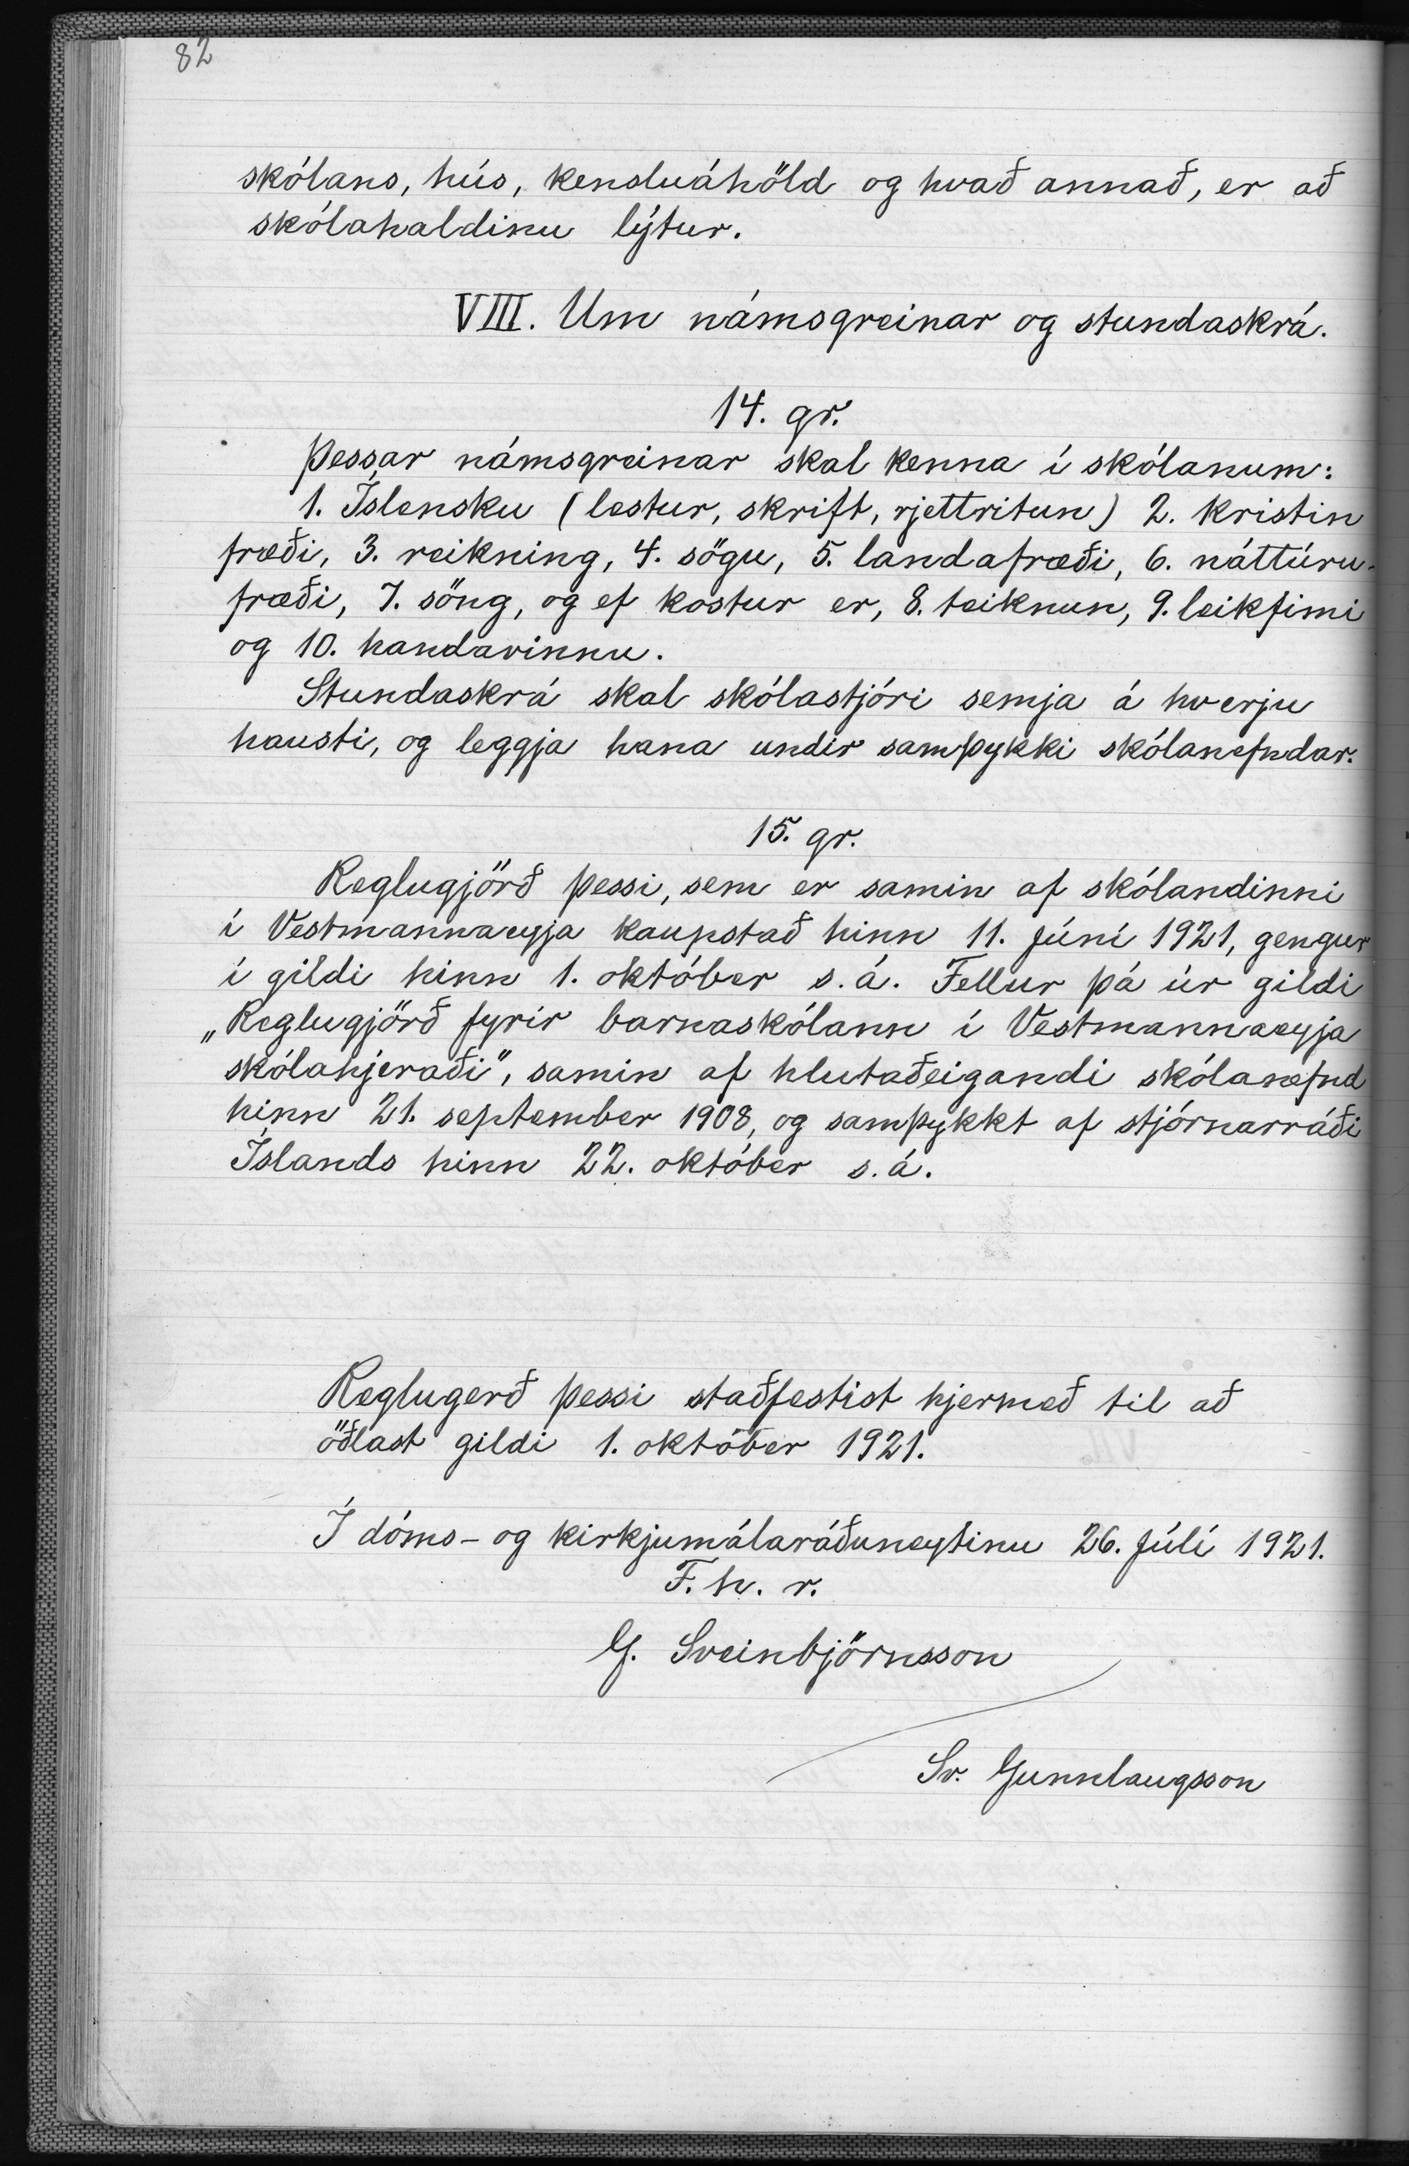 82
skólans, hús, kensluáhöld og hvað annað, er að
skólahaldinu lýtur.
VIII. Um námsgreinar og stundaskrá.
14. gr.
Þessar námsgreinar skal kenna í skólanum:
1. Íslensku (lestur, skrift, rjettritun) 2. kristin
fræði, 3. reikning, 4. sögu, 5. landafræði, 6. náttúru-
fræði, 7. söng, og ef kostur er, 8. teiknun, 9. leikfimi
og 10. handavinnu.
Stundaskrá skal skólastjóri semja á hverju
hausti, og leggja hana undir samþykki skólanefndar.
15. gr.
Reglugjörð þessi, sem er samin af skólandinni
í Vestmannaeyja kaupstað hinn 11. júní 1921, gengur
í gildi hinn 1. október s.á. Fellur þá úr gildi
„Reglugjörð fyrir barnaskólann í Vestmannaeyja
skólahjeraði", samin af hlutaðeigandi skólanefnd
hinn 21. september 1908, og samþykkt af stjórnarráði
Íslands hinn 22. október s.á.
Reglugerð þessi staðfestist hjermeð til að
öðlast gildi 1. október 1921.
Í dóms- og kirkjumálaráðuneytinu 26. júlí 1921.
F. h. r.
G. Sveinbjörnsson
Sv. Gunnlaugsson